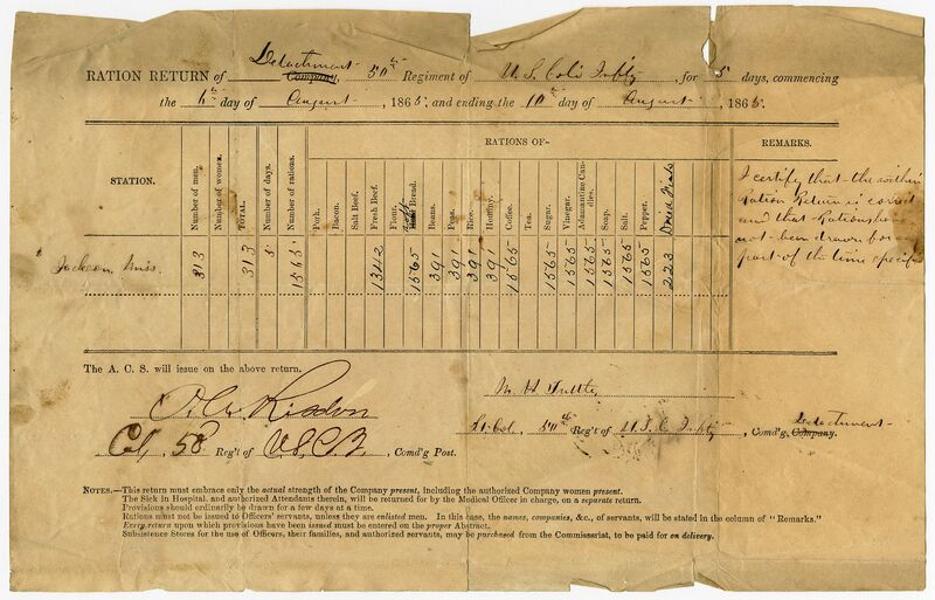 RATION RETURN of Detachment Company, 50th Regiment of U.S. Col'd Infty, for 5 days, commencing
the 6th day of August, 1865, and ending the 10th day of August, 1865.
STATION.
Number of men.
Number of women.
TOTAL.
Number of days.
Number of rations.
RATIONS OF-
Pork.
Bacon.
Salt Beef.
Fresh Beef.
Flour.
Bread.
Beans.
Peas.
Rice.
Hominy.
Coffee.
Tea.
Sugar.
Vinegar.
Adamantine Candles.
Soap.
Salt.
Pepper.
Dried Fish
REMARKS.
Jackson, Miss. 313 313 5 1565 1342 1565 391 391 391 391 1565 1565 1565 1565 1565 1565 1565 223
I certify that the within
Ration Return is correct
and that Rations have
not been drawn for any
part of the time specifi
The A. C. S. will issue on the above return.
Risdon
Col, 58 Reg't of U.S.C.I., Comd'g Post.
M. H. Tuttle,
Lt. Col, 50th Reg't of U.S.C. Infty, Comd'g Company. Detachment
NOTES.—This return must embrace only the actual strength of the Company present, including the authorized Company women present.
The Sick in Hospital, and authorized Attendants therein, will be returned for by the Medical Officer in charge, on a separate return.
Provisions should ordinarily be drawn for a few days at a time.
Rations must not be issued to Officers' servants, unless they are enlisted men. In this case, the names, companies, &c., of servants, will be stated in the column of "Remarks."
Every return upon which provisions have been issued must be entered on the proper Abstract.
Subsistence Stores for the use of Officers, their families, and authorized servants, may be purchased from the Commissariat, to be paid for on delivery.